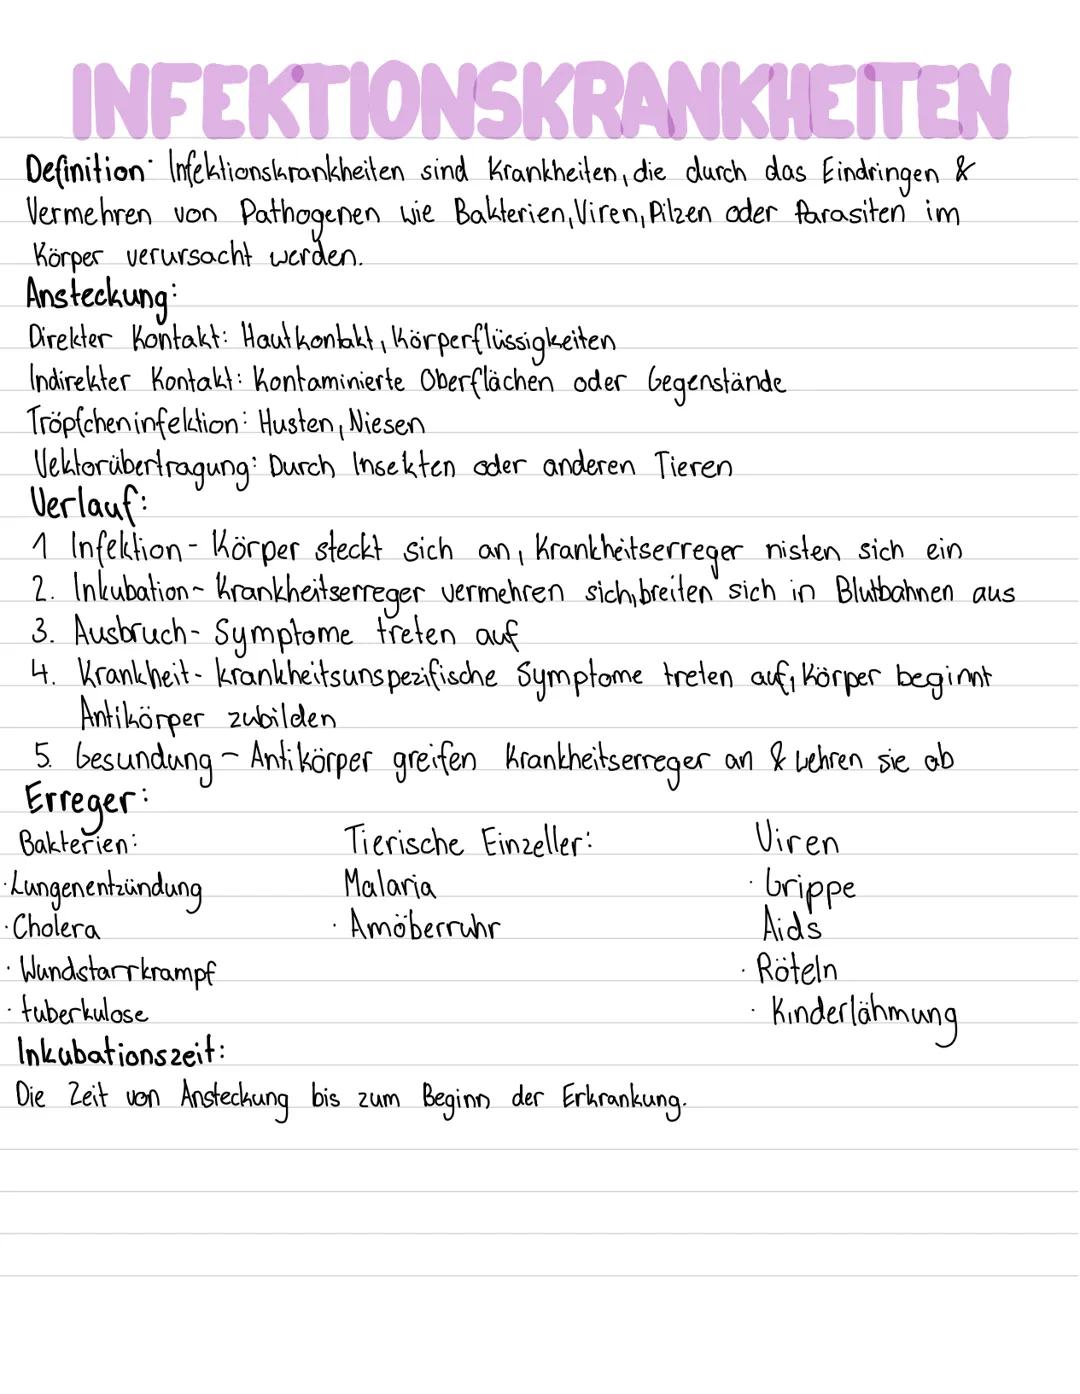 INFEKTIONSKRANKHEITEN
Definition: Infektionskrankheiten sind Krankheiten, die durch das Eindringen &
Vermehren von Pathogenen wie Bakterien, Viren, Pilzen oder Parasiten im
Körper verursacht werden.
Ansteckung:
Direkter Kontakt: Hautkontakt, Körperflüssigkeiten
Indirekter Kontakt: Kontaminierte Oberflächen oder Gegenstände
Tröpfcheninfektion: Husten, Niesen
Vektorübertragung: Durch Insekten oder anderen Tieren
Verlauf:
1 Infektion - Körper steckt sich an, Krankheitserreger nisten sich ein
2. Inkubation - Krankheitserreger vermehren sich, breiten sich in Blutbahnen aus
3. Ausbruch - Symptome treten auf
4. Krankheit - krankheitsunspezifische Symptome treten auf, Körper beginnt
Antikörper zubilden
5. Gesundung - Antikörper greifen Krankheitserreger an & wehren sie ab
Erreger:
Bakterien: Tierische Einzeller: Viren
· Lungenentzündung Malaria · Grippe
· Cholera · Amöberruhr Aids
· Wundstarrkrampf · Röteln
· tuberkulose · Kinderlähmung
Inkubationszeit:
Die Zeit von Ansteckung bis zum Beginn der Erkrankung.